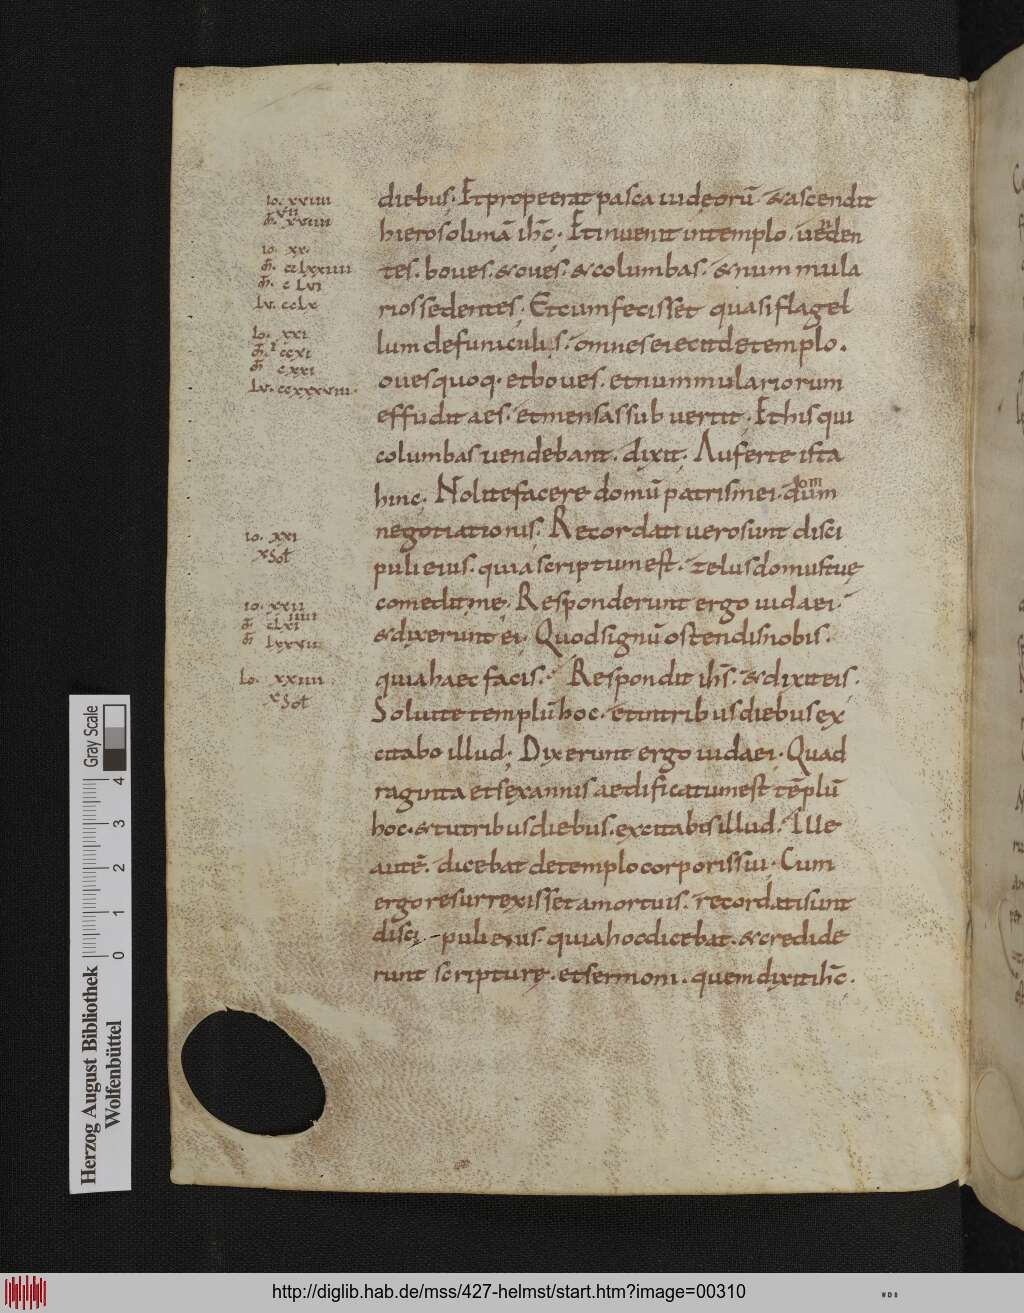 diebus. Et prope erat pasca iudęorū. & ascendit
hierosolimā ihc̄. Et inuenit in templo. ueden
tes. boues. & oues. & columbas. & nummula
rios sedentes. Et cum fecisset quasi flagel
lum de funiculis. omnes eiecit de templo.
oues quoq. et boues. et nummulariorum
effudit aes. et mensas subuertit. Et his qui
columbas uendebant. dixit. Auferte ista
hinc. Nolite facere domū patris mei. domum
negotiationis. Recordati uero sunt disci
puli eius. quia scriptum est. zelus domus tuę
comedit me. Responderunt ergo iudaei.
& dixerunt ei. Quod signū ostendis nobis.
quia haec facis. Respondit ihs̄. & dixit eis.
Soluite templū hoc. et in tribus diebus ex
citabo illud. Dixerunt ergo iudaei. Quad
raginta et sex annis aedificatum est tēplū
hoc. & tu tribus diebus. excitabis illud. Ille
autē. dicebat de templo corporis sui. Cum
ergo resurrexisset a mortuis. recordati sunt
disci-puli eius. quia hoc dicebat. & credide
runt scripturę. et sermoni. quem dixit ihc̄.
Io. xxiiii
io. xx.
cclxxiiii
c lvi
lv. cclx
Io. xxi
ccxi
cxxi
lv. ccxxxviii.
io. xxi
x Sol
io. xxii
clxi
lxxxvii
Io. xxiiii
x Sol
Gray Scale
4 3 2 1 0
Herzog August Bibliothek
Wolfenbüttel
http://diglib.hab.de/mss/427-helmst/start.htm?image=00310